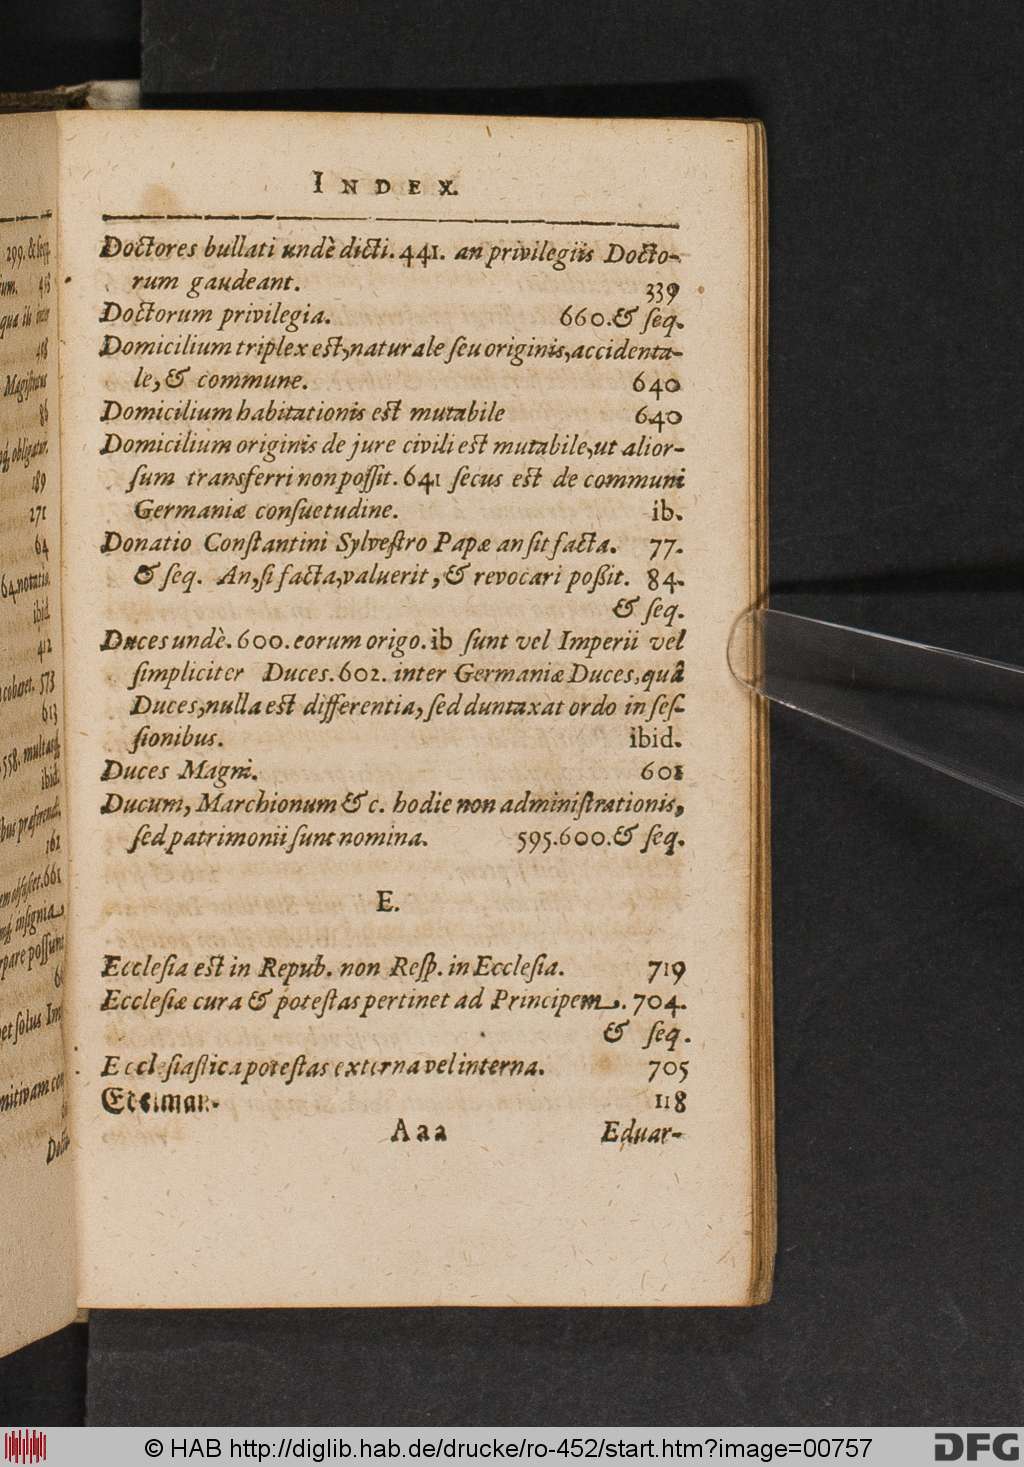 299. & seq.
418
qua ib
418
Magistratus
86
obligatur.
189
271
64
64. notatio.
ibid.
412
573
613
558.
ibid.
præferendi,
162
661
insignia
possunt
et solus Im
nitivam
Docto
INDEX.
Doctores bullati undè dicti. 441. an privilegiis Docto-
rum gaudeant. 339
Doctorum privilegia. 660. & ſeq.
Domicilium triplex eſt, naturale ſeu originis, accidenta-
le, & commune. 640
Domicilium habitationis eſt mutabile 640
Domicilium originis de jure civili eſt mutabile, ut alior-
ſum transferri non poſſit. 641 ſecus eſt de communi
Germaniæ conſuetudine. ib.
Donatio Conſtantini Sylveſtro Papæ an ſit facta. 77.
& ſeq. An, ſi facta, valuerit, & revocari poßit. 84.
& ſeq.
Duces undè. 600. eorum origo. ib ſunt vel Imperii vel
ſimpliciter Duces. 602. inter Germaniæ Duces, quâ
Duces, nulla eſt differentia, ſed duntaxat ordo in ſeſ-
ſionibus. ibid.
Duces Magni. 601
Ducum, Marchionum & c. hodie non adminiſtrationis,
ſed patrimonii ſunt nomina. 595. 600. & ſeq.
E.
Eccleſia eſt in Repub. non Reſp. in Eccleſia. 719
Eccleſiæ cura & poteſtas pertinet ad Principem. 704.
& ſeq.
Eccleſiaſtica poteſtas externa vel interna. 705
Edelman. 118
Aaa Eduar-
© HAB http://diglib.hab.de/drucke/ro-452/start.htm?image=00757
DFG